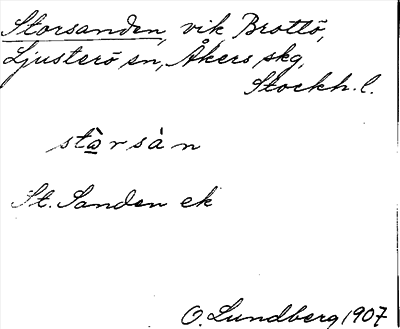 Storsanden, vik, Brottö,
Ljusterö sn, Åkers skg,
Stockh. l.
stàrsàn
St. Sanden ek
O. Lundberg 1907